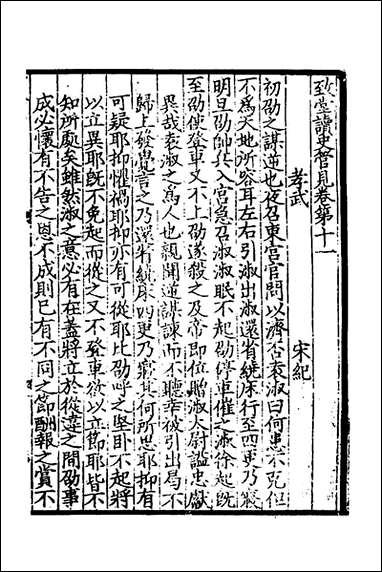 致堂讀史管見卷第十一
孝武　宋紀
初劭之謀逆也夜召東宮官問以濟否袁淑曰何患不克但
不為天地所容耳左右引淑出淑還省繞床行至四更乃寢
明旦劭帥兵入宮急召淑淑眠不起劭停車催之淑徐起旣
至劭使登車又不上劭遂殺之及帝即位贈淑太尉諡忠獻
異哉袁淑之為人也親聞逆謀諫而不聽幸被引出局不
歸上發覺言之乃還省繞床四更乃寢其何所思耶抑有
可疑耶抑懼禍耶抑亦有可從耶比劭呼之堅目不起將
以立異耶旣不免起而從之又不登車欲以立節耶皆不
知所處矣雖然淑之意必有在蓋將立於從違之間劭事
成必懷有不告之恩不成則已有不同之節酬報之賞不